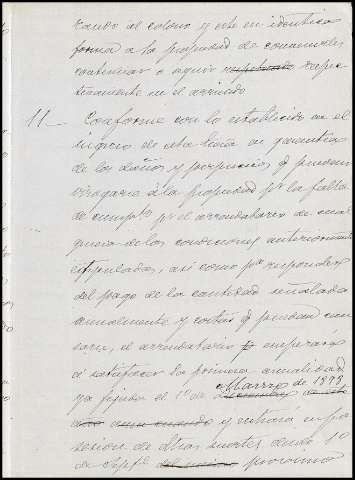 tando al colono y este en identica
forma a la propiedad de convenirles
continuar o seguir respetando
en el arriendo
11 — Conforme con lo establecido en el
ingreso de esta en garantia
de los daños y perjuicios q pueden
irrogarse a la propiedad pr la falta
de cumpto pr el arrendatario de cual
quiera de las condiciones anteriormente
estipuladas, asi como pa responder
del pago de la cantidad señalada
anualmente y costas q puedan cau
sarse, el arrendatario empezará
á satisfacer la primera anualidad
Marzo de 1898
ya fijada el 1º de Diciembre de este
año y entrará en po
sesion de dhas suertes desde 1º
de Sepe del mismo proximo